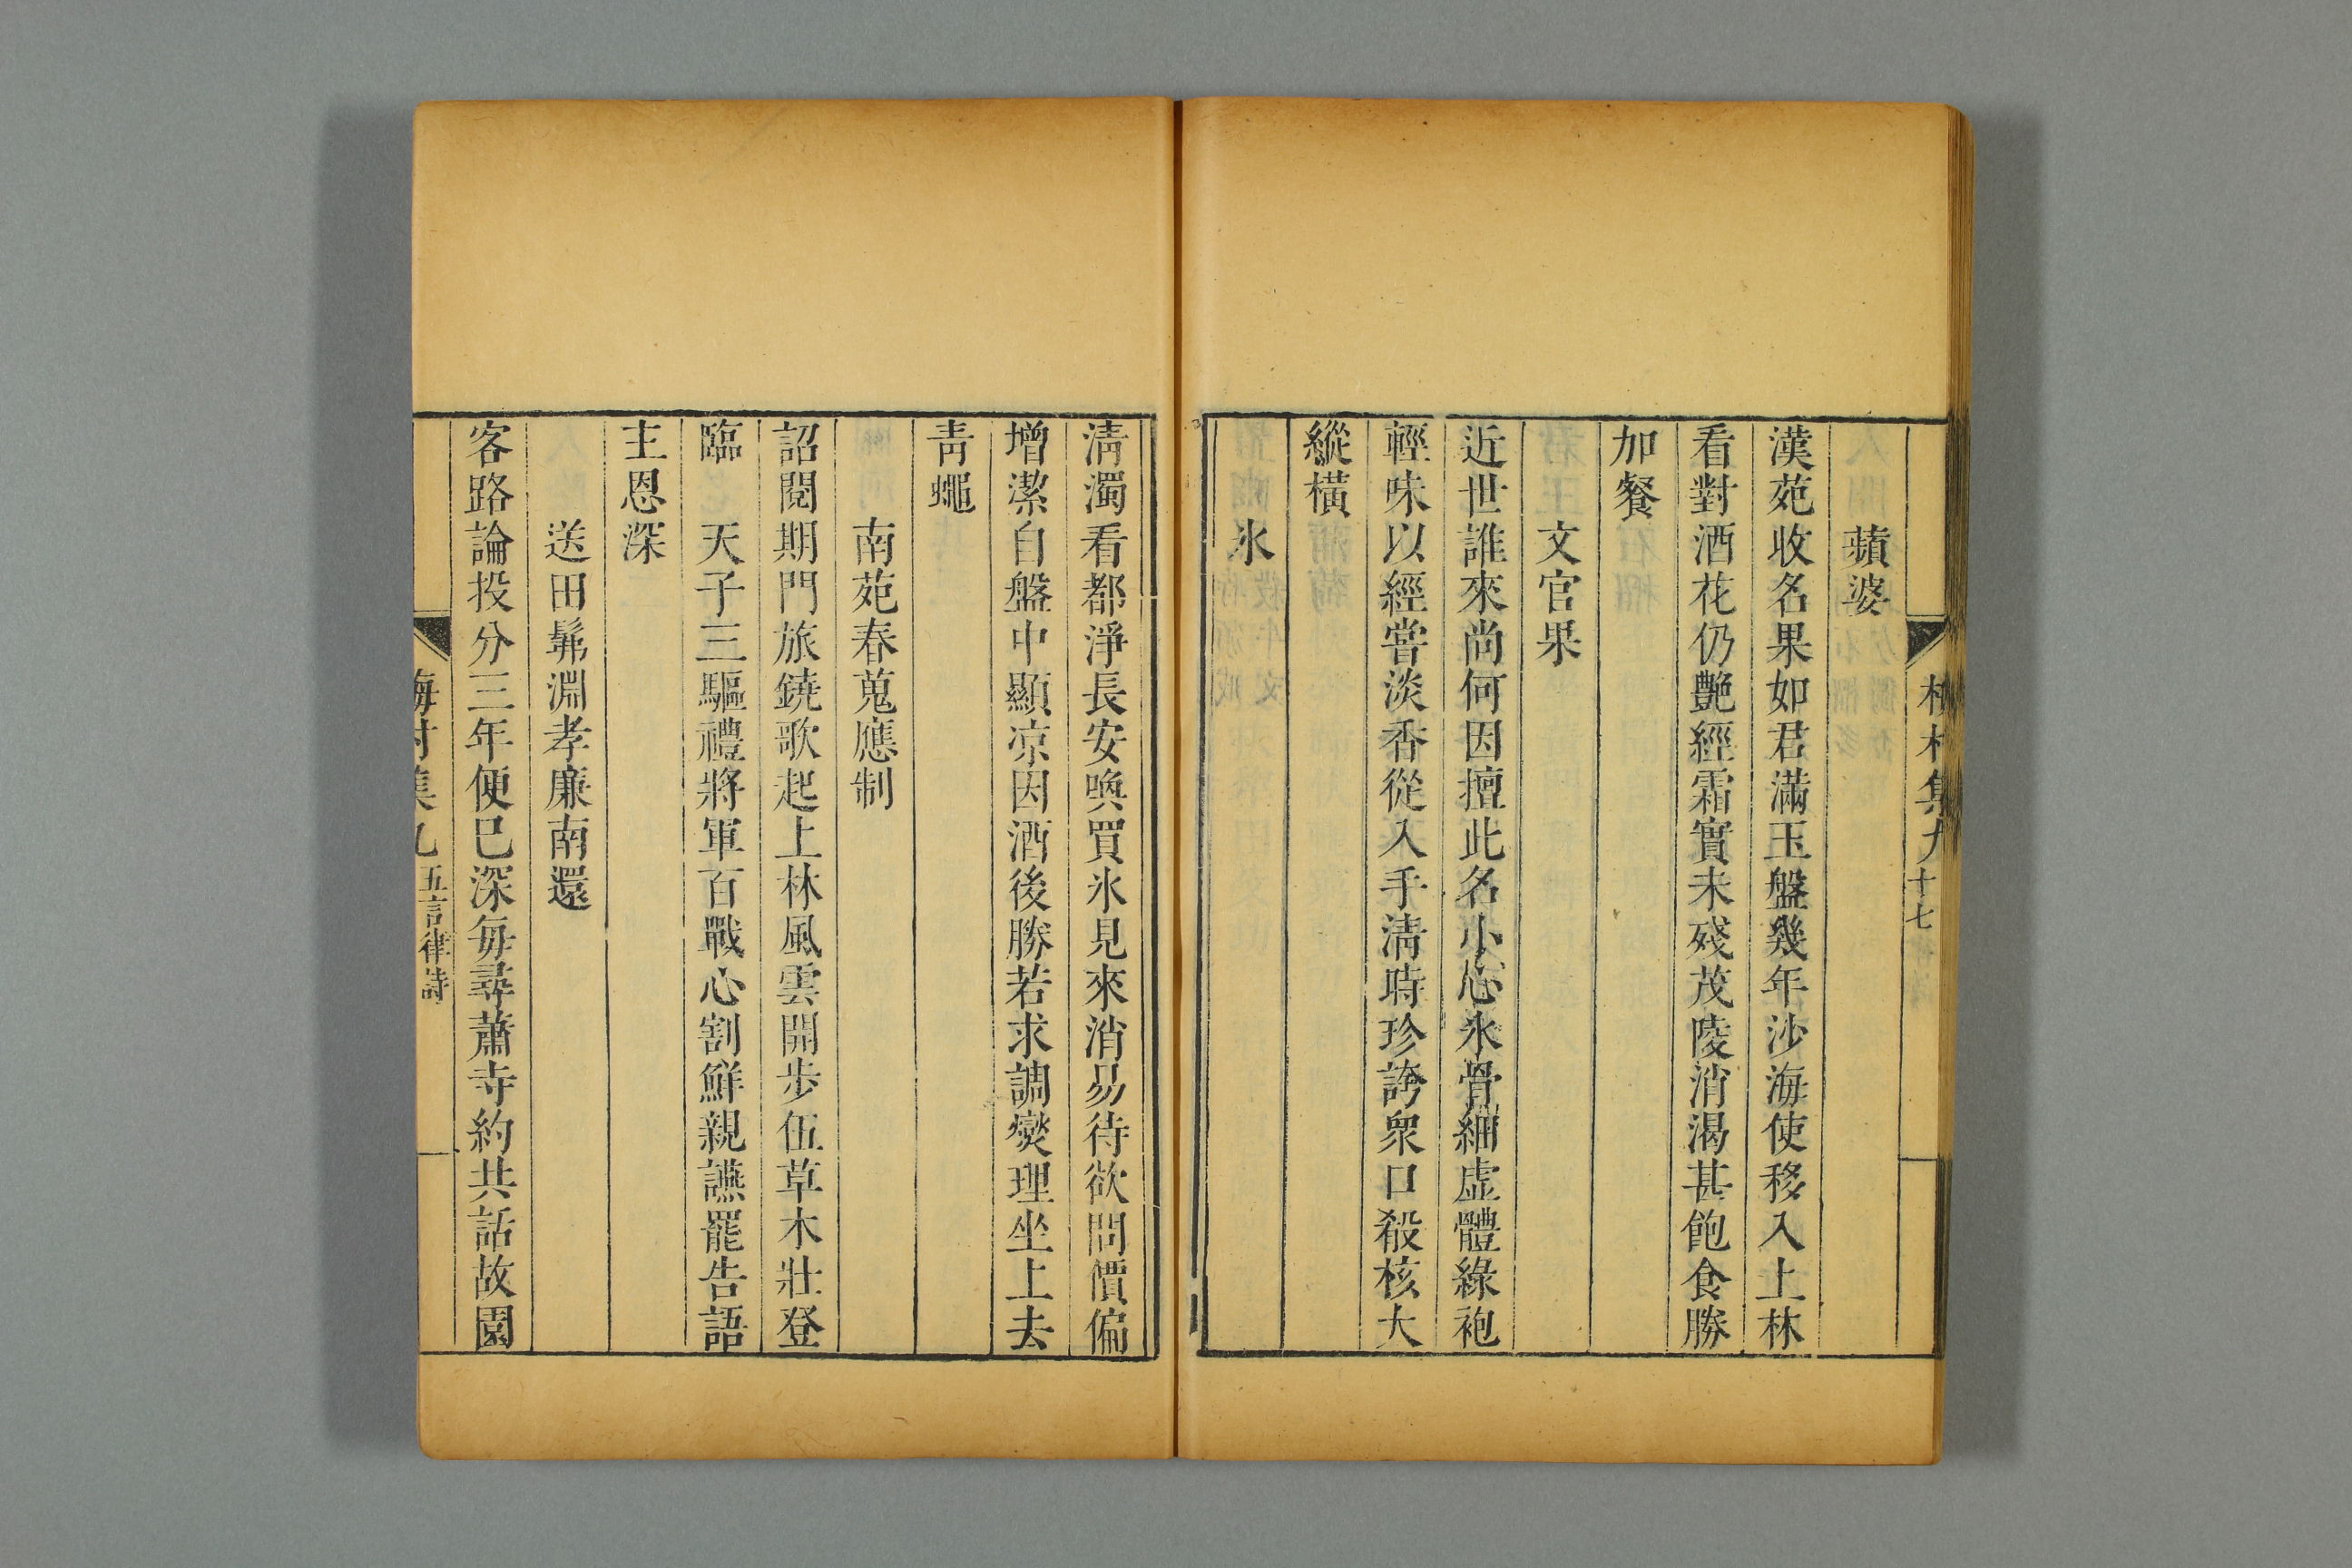 蘋婆
漢苑收名果如君滿玉盤幾年沙海使移入上林
看對酒花仍艷經霜實未殘茂陵消渴甚飽食勝
加餐
文官果
近世誰來尚何因擅此名小心氷骨細虛體綠袍
輕味以經嘗淡香從入手淸時珍誇衆口殽核大
縱橫
氷
淸濁看都淨長安喚買氷見來消易待欲問價偏
增潔自盤中顯凉因酒後勝若求調燮理坐上去
靑蠅
南苑春蒐應制
詔閱期門旅鐃歌起上林風雲開步伍草木壯登
臨 天子三驅禮將軍百戰心割鮮親讌罷告語
主恩深
送田髴淵孝廉南還
客路論投分三年便已深每尋蕭寺約共話故園
梅村集九 五言律詩
十七